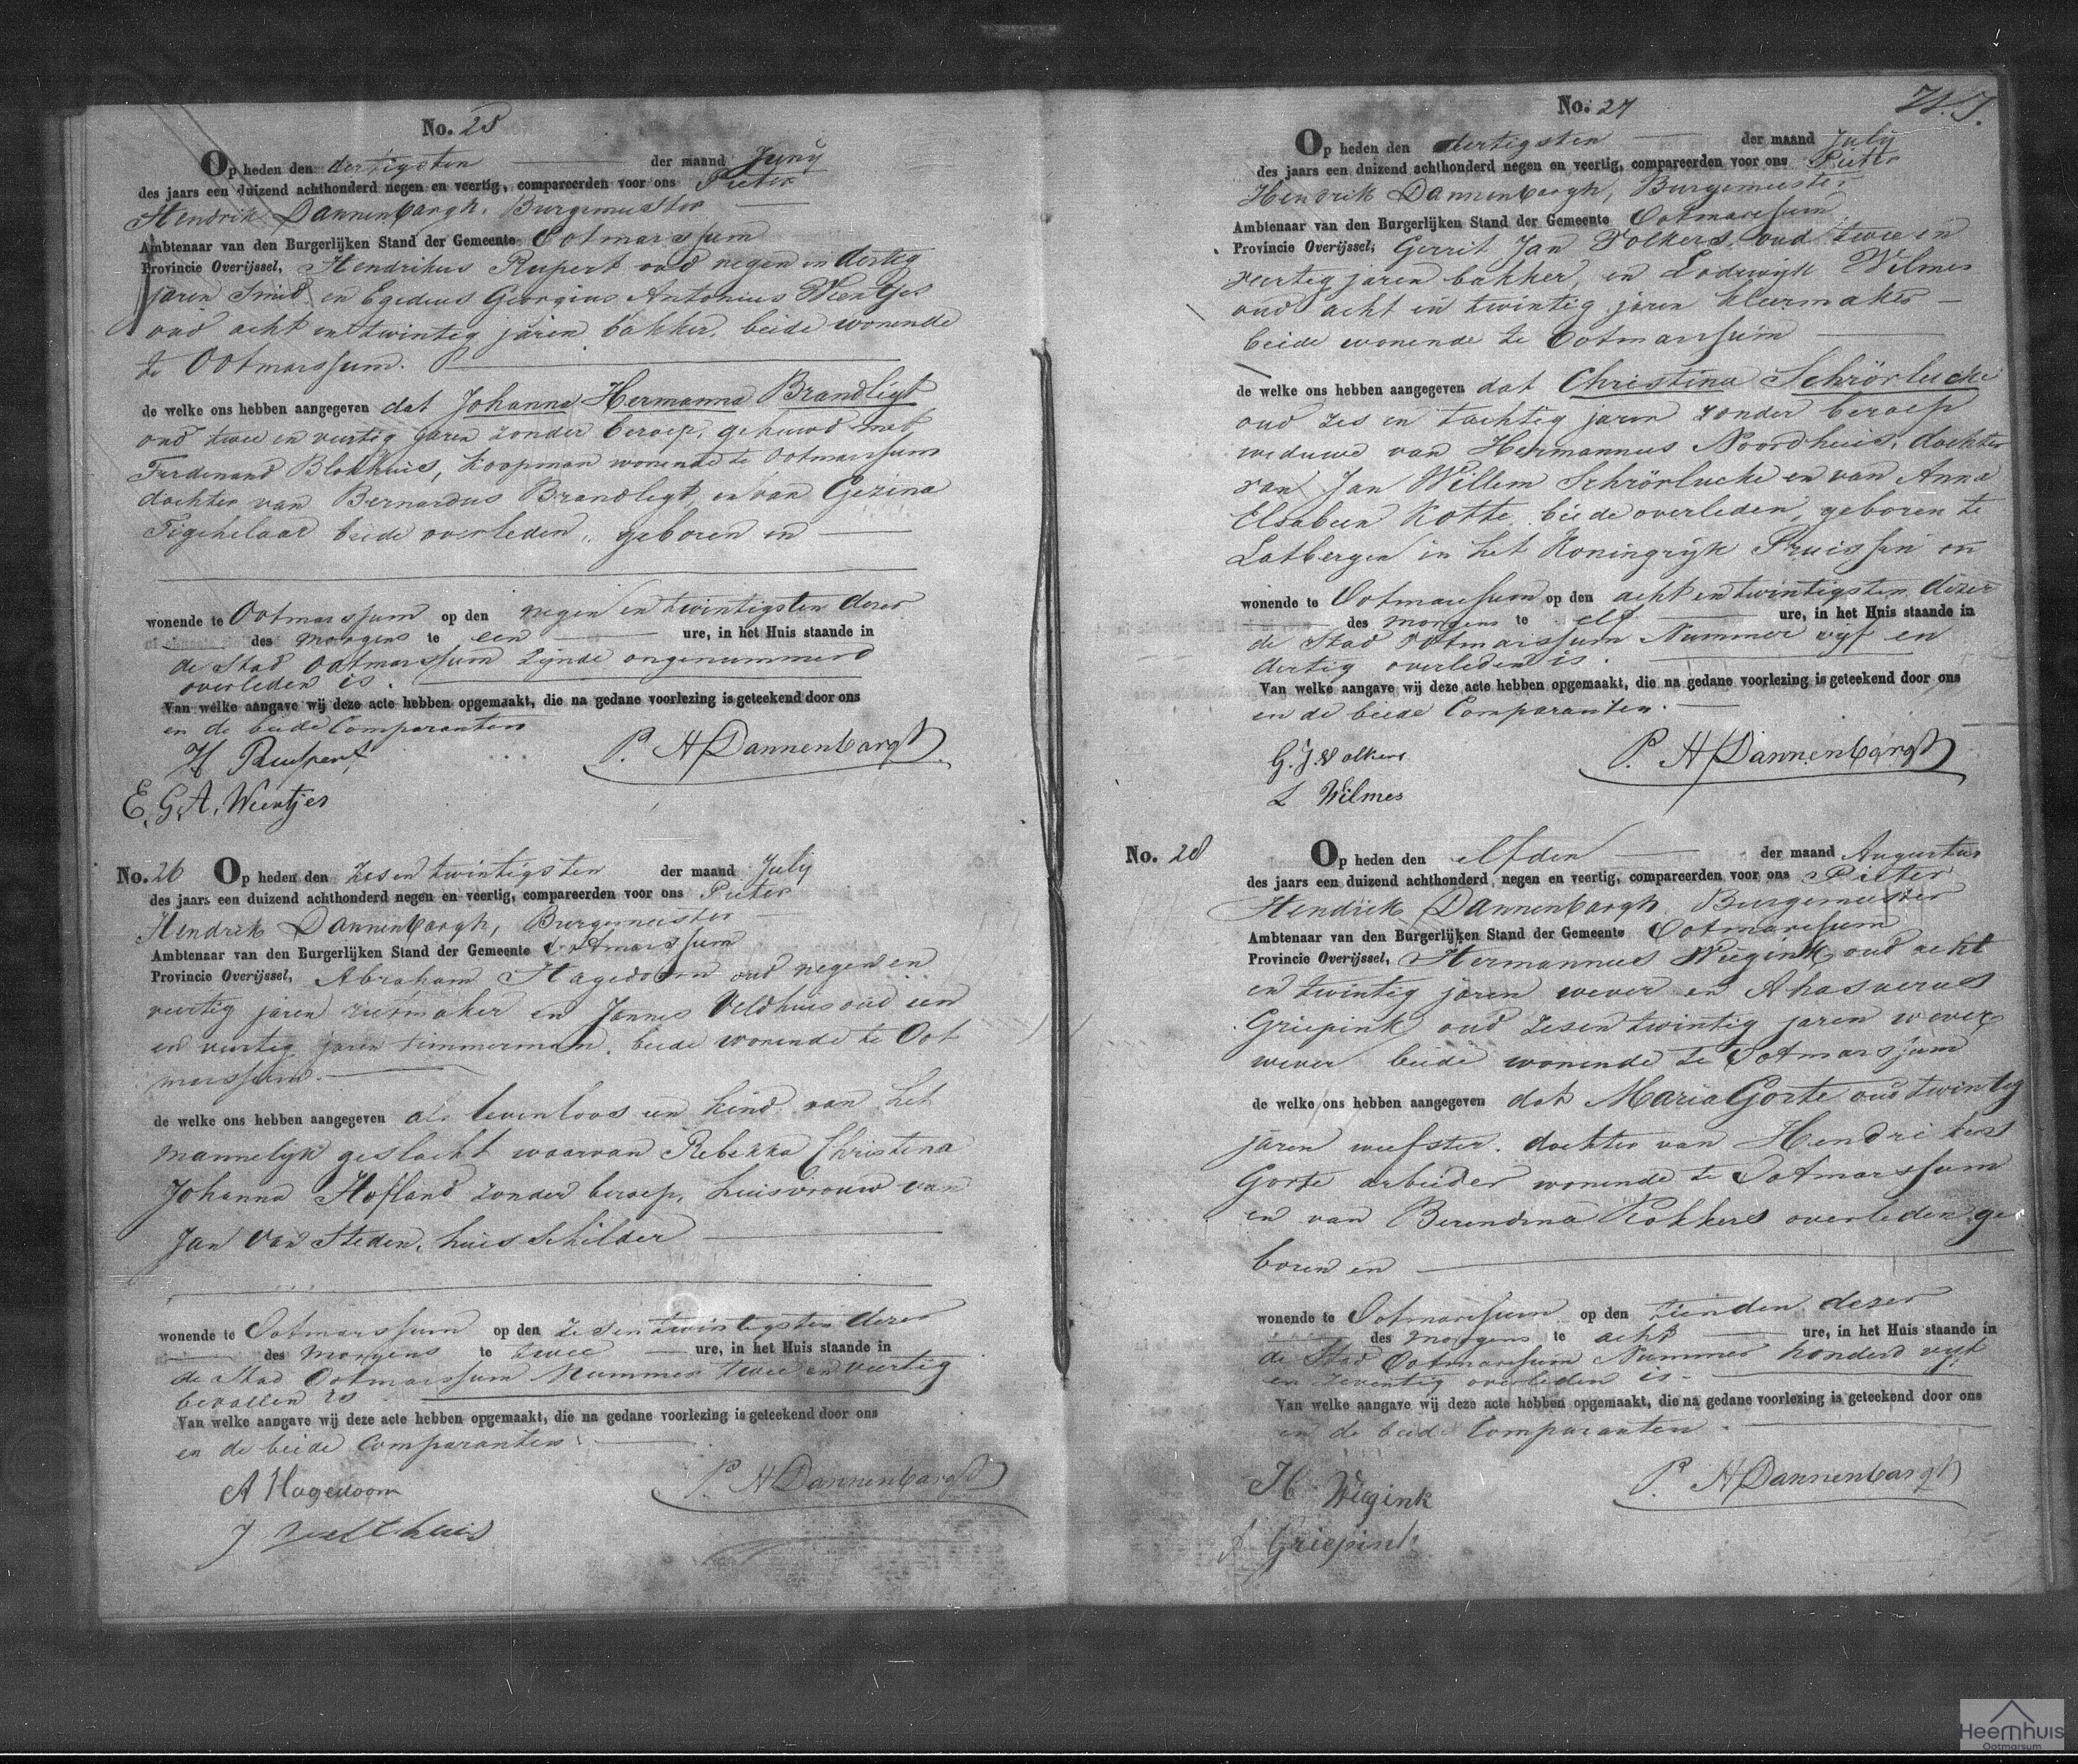 No. 25
Op heden den dertigsten der maand Juny
des jaars een duizend achthonderd negen en veertig, compareerden voor ons Pieter
Hendrik Dannenbargh, Burgemeester
Ambtenaar van den Burgerlijken Stand der Gemeente Ootmarssum
Provincie Overijssel, Hendrikus Rupert oud negen en dertig
jaren Smid en Egedius Georgius Antonius Weentjes
oud acht en twintig jaren bakker, beide wonende
te Ootmarssum.
de welke ons hebben aangegeven dat Johanna Hermanna Brandligt
oud twee en veertig jaren zonder beroep, gehuwd met
Ferdenand Blokhuis, koopman wonende te Ootmarssum
dochter van Bernardus Brandligt, en van Gezina
Tigchelaar beide overleden, geboren en
wonende te Ootmarssum op den negen en twintigsten dezer
des morgens te een ure, in het Huis staande in
de Stad Ootmarssum zijnde ongenummerd
overleden is.
Van welke aangave wij deze acte hebben opgemaakt, die na gedane voorlezing is geteekend door ons
en de beide Comparanten
H Rupert P. H Dannenbargh
E. G. A. Weentjes
No. 26 Op heden den zes en twintigsten der maand July
des jaars een duizend achthonderd negen en veertig, compareerden voor ons Pieter
Hendrik Dannenbargh, Burgemeester
Ambtenaar van den Burgerlijken Stand der Gemeente Ootmarssum
Provincie Overijssel, Abraham Hagedoorn oud negen en
veertig jaren rietmaker en Jannes Veldhuis oud een
en veertig jaren timmerman, beide wonende te Oot
marssum.
de welke ons hebben aangegeven als levenloos een kind van het
mannelijk geslacht waarvan Rebekka Christina
Johanna Hofland zonder beroep, huisvrouw van
Jan van Steden, huisschilder
wonende te Ootmarssum op den zes en twintigsten dezer
des morgens te twee ure, in het Huis staande in
de Stad Ootmarssum Nummer twee en veertig
bevallen is
Van welke aangave wij deze acte hebben opgemaakt, die na gedane voorlezing is geteekend door ons
en de beide Comparanten
A Hagedoorn P. H Dannenbargh
J Velthuis
No. 27
Op heden den dertigsten der maand July
des jaars een duizend achthonderd negen en veertig, compareerden voor ons Pieter
Hendrik Dannenbargh, Burgemeester
Ambtenaar van den Burgerlijken Stand der Gemeente Ootmarssum
Provincie Overijssel, Gerrit Jan Volkers, oud twee en
veertig jaren bakker, en Lodewijk Wilmes
oud acht en twintig jaren kleermaker
beide wonende te Ootmarssum
de welke ons hebben aangegeven dat Christina Schrörlucke
oud zes en tachtig jaren zonder beroep
weduwe van Hermannus Noordhuis, dochter
van Jan Willem Schrörlucke en van Anna
Elsabeen Kotte, beide overleden, geboren te
Lotbergen in het Koningrijk Pruissen en
wonende te Ootmarssum op den acht en twintigsten dezer
des morgens te elf ure, in het Huis staande in
de Stad Ootmarssum Nummer vijf en
dertig overleden is.
Van welke aangave wij deze acte hebben opgemaakt, die na gedane voorlezing is geteekend door ons
en de beide Comparanten.
G. J. Volkers P. H Dannenbargh
L Wilmes
No. 28 Op heden den elfden der maand Augustus
des jaars een duizend achthonderd negen en veertig, compareerden voor ons Pieter
Hendrik Dannenbargh Burgemeester
Ambtenaar van den Burgerlijken Stand der Gemeente Ootmarssum
Provincie Overijssel, Hermannus Wiegink, oud acht
en twintig jaren wever en Ahasverus
Griepink oud zes en twintig jaren wever
wever beide wonende te Ootmarssum
de welke ons hebben aangegeven dat Maria Gorte oud twintig
jaren weefster, dochter van Hendrikus
Gorte arbeider wonende te Ootmarssum
en van Berendina Rokkers overleden, ge
boren en
wonende te Ootmarssum op den tienden dezer
des morgens te acht ure, in het Huis staande in
de Stad Ootmarssum Nummer honderd vijf
en zeventig overleden is.
Van welke aangave wij deze acte hebben opgemaakt, die na gedane voorlezing is geteekend door ons
en de beide Comparanten
H Wiegink P. H Dannenbargh
Griepink
Heemhuis
Ootmarsum